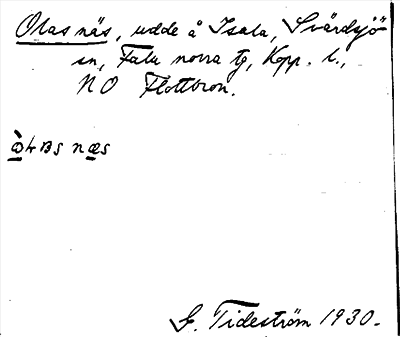 Olas näs, udde å Isala, Svärdsjö
sn, Falu norra tg, Kopp. l.,
NO Flottbron.
næs
G. Tideström 1930.